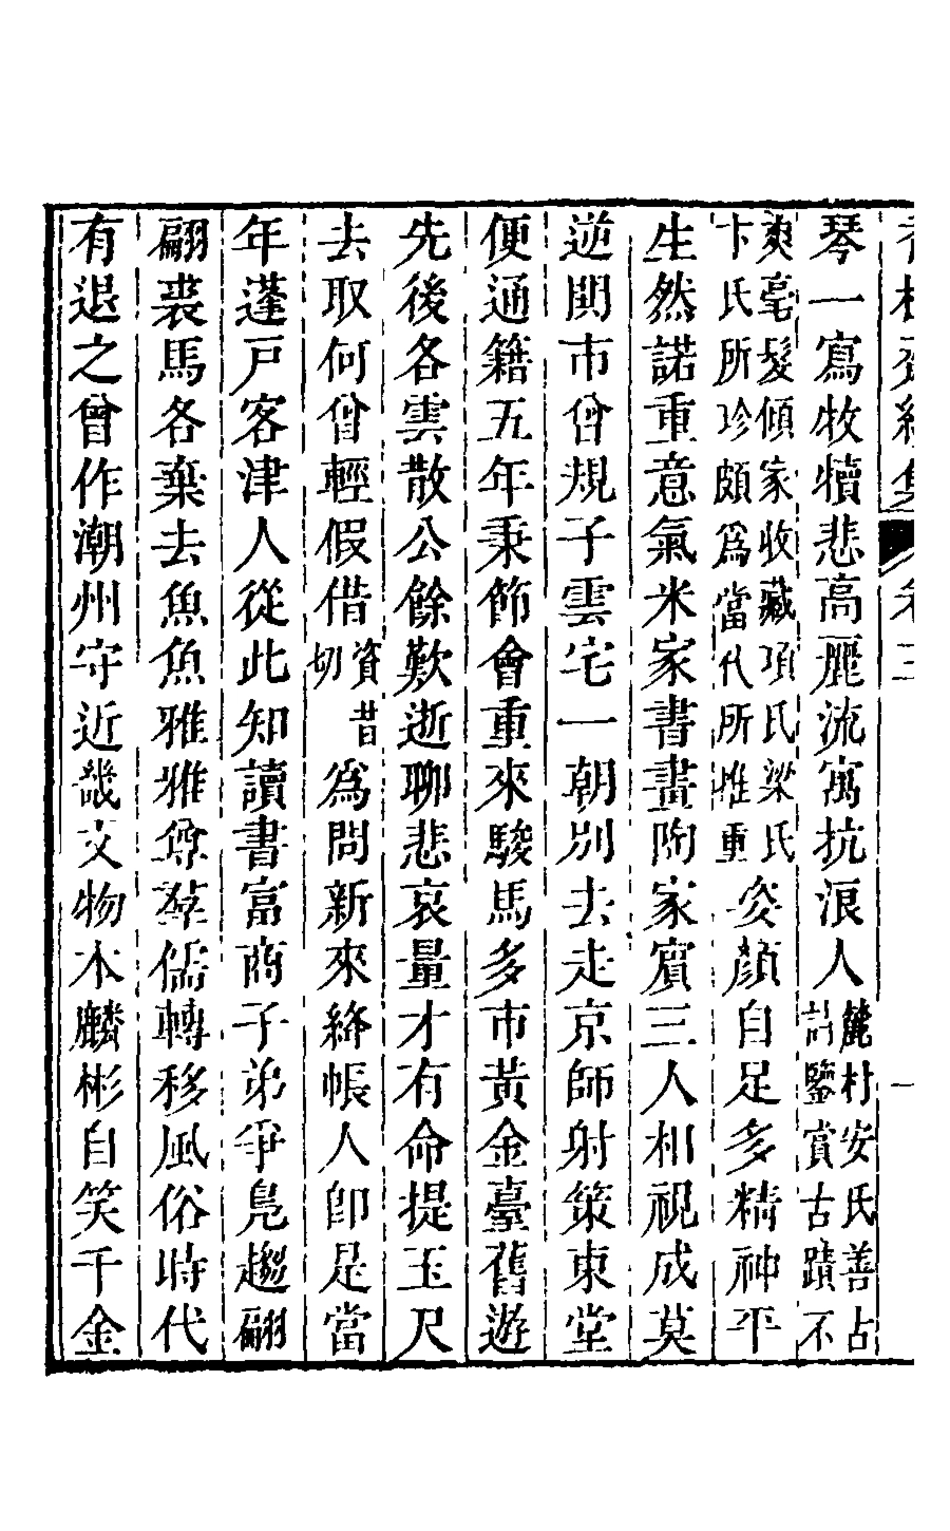 香樹齋續集 卷三 一
琴一寫牧犢悲高麗流寓抗浪人麓村安氏善占詁鑒賞古蹟不
爽毫髮傾家收藏項氏梁氏卞氏所珍頗爲當代所推重姿顏自足多精神平
生然諾重意氣米家書畫陶家賓三人相視成莫
逆市曾規子雲宅一朝別去走京師射策東堂
便通籍五年秉節會重來駿馬多市黃金臺舊遊
先後各雲散公餘歎逝聊悲哀量才有命提玉尺
去取何曾輕假借資昔切爲問新來絳帳人卽是當
年蓬戸客津人從此知讀書富商子弟爭鳧趨翩
翩裘馬各棄去魚魚雅雅尊羣儒轉移風俗時代
有退之曾作潮州守近畿文物本麟彬自笑千金